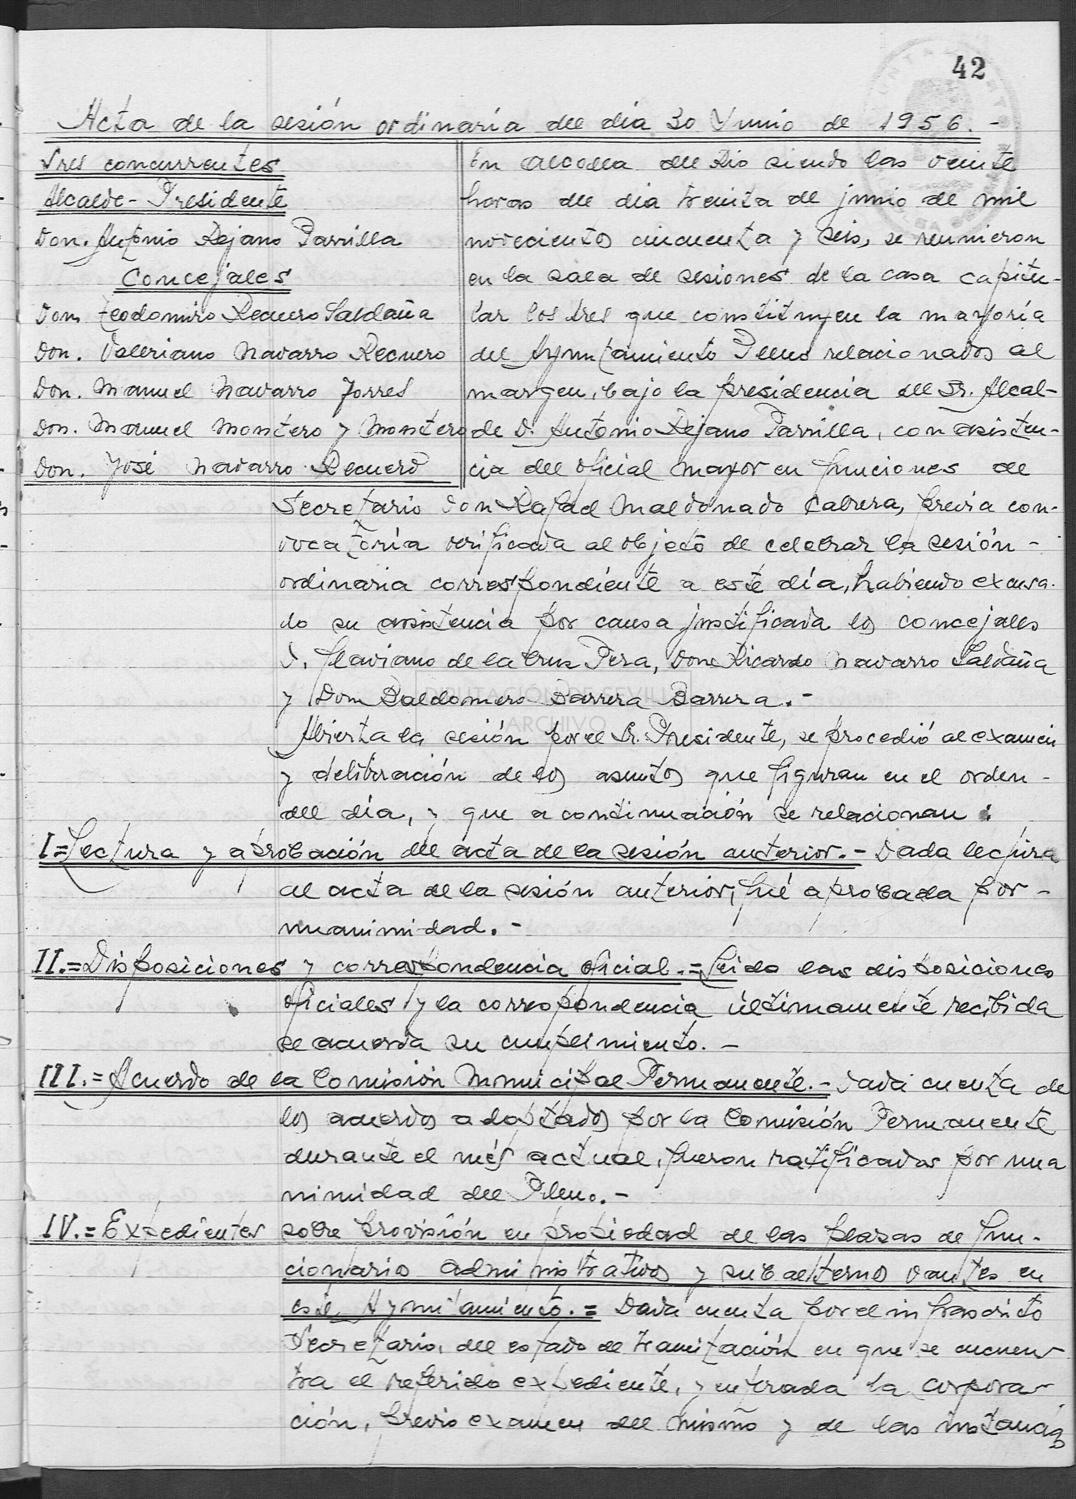 42
Acta de la sesión ordinaria del día 30 Junio de 1956.-
Sres concurrentes
Alcalde-Presidente
Don. Antonio Rejano Parrilla
Concejales
Don Teodomiro Recuero Saldaña
Don. Valeriano Navarro Recuero
Don. Manuel Navarro Torres
Don. Manuel Montero y Montero
Don. José Navarro Recuero
En Alcolea del Rio siendo las veinte
horas del día treinta de junio de mil
novecientos cincuenta y seis, se reunieron
en la sala de sesiones de la casa capitu-
lar los Sres que constituyen la mayoría
del Ayuntamiento Pleno relacionados al
margen, bajo la presidencia del Sr. Alcal-
de D. Antonio Rejano Parrilla, con asisten-
cia del oficial mayor en funciones de
Secretario Don Rafael Maldonado Cabrera, previa con-
vocatoria verificada al objeto de celebrar la sesión -
ordinaria correspondiente a este día, habiendo excusa-
do su asistencia por causa justificada los concejales
D. Flaviano de la Cruz Pera, Don Ricardo Navarro Saldaña
y Don Baldomero Barrera Barrera.-
DIPUTACIÓN DE SEVILLA
ARCHIVO
Abierta la sesión por el Sr. Presidente, se procedió al examen
y deliberación de los asuntos que figuran en el orden -
del día, y que a continuación se relacionan :
I=Lectura y aprobación del acta de la sesión anterior.- Dada lectura
al acta de la sesión anterior, fué aprobada por -
unanimidad.-
II.=Disposiciones y correspondencia oficial.=Leido las disposiciones
oficiales y la correspondencia últimamente recibida
se acuerda su cumplimiento.-
III.=Acuerdo de la Comisión Municipal Permanente.- Dada cuenta de
los acuerdos adoptados por la Comisión Permanente
durante el més actual, fueron ratificadas por una
nimidad del Pleno.-
IV.=Expedientes sobre provisión en propiedad de las plazas de fun-
cionarios administrativos y subalternos vantes en
este Ayuntamiento.= Dada cuenta por el infrascrito
Secretario, del estado de tramitación en que se encuen-
tra el referido expediente, y enterada la corpora-
ción, previo examen del mismo y de las instancias